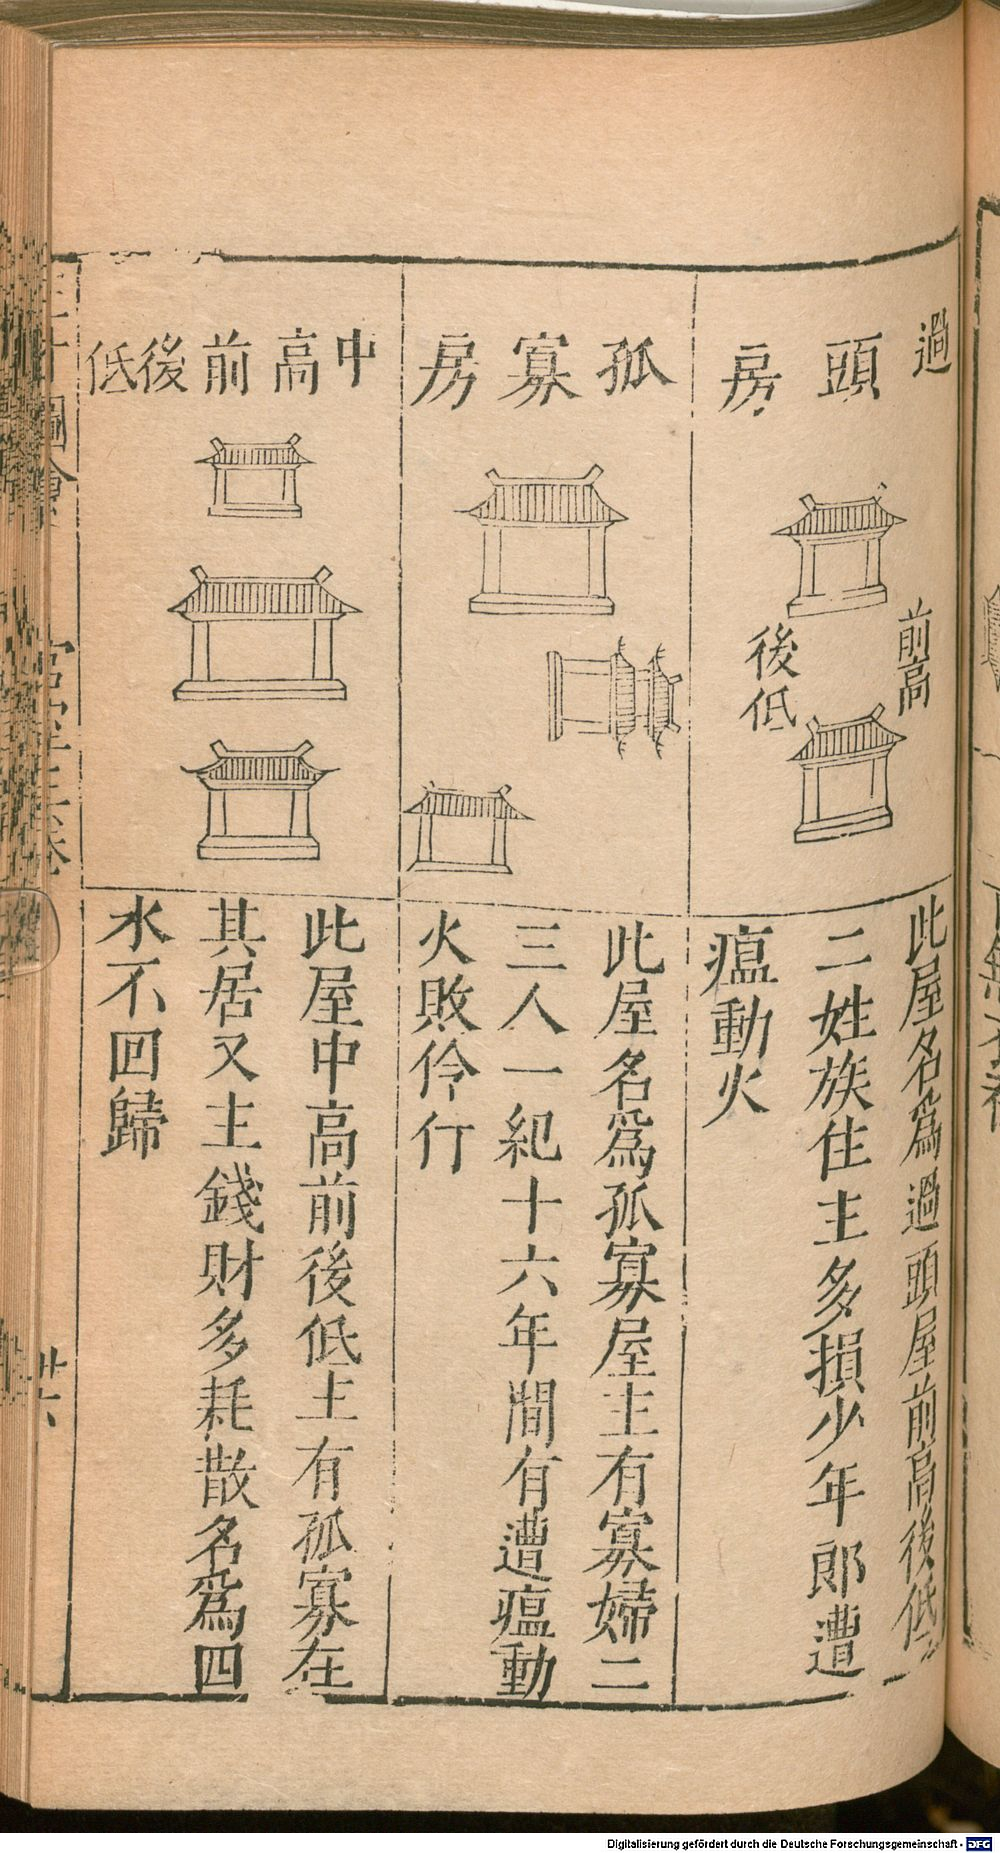 過頭房
前高
後低
此屋名爲過頭屋前高後低
二姓族住主多損少年郎遭
瘟動火
孤寡房
此屋名爲孤寡屋主有寡婦二
三人一紀十六年間有遭瘟動
火敗伶仃
中高前後低
此屋中高前後低主有孤寡在
其居又主錢財多耗散名爲四
水不回歸
圖會
宮室三卷
Digitalisierung gefördert durch die Deutsche Forschungsgemeinschaft - DFG